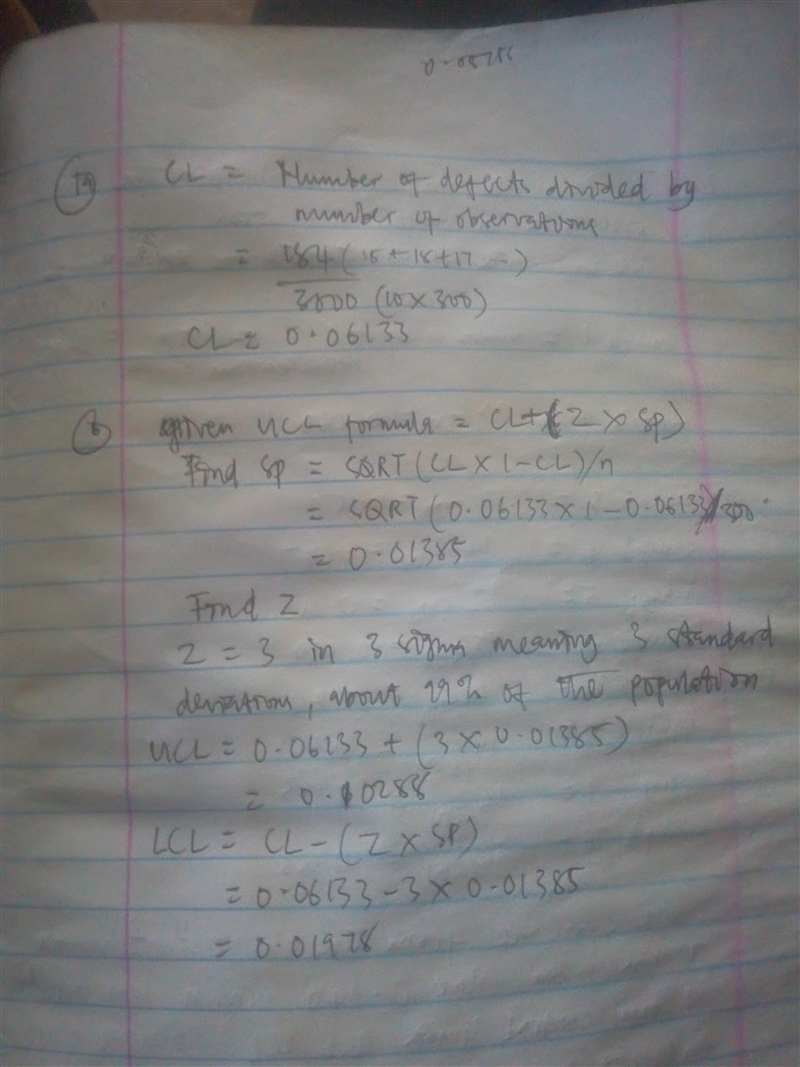 0.05256
1a CL = Number of defects divided by
number of observations
= 184 (15+18+17 -)
3000 (10×300)
CL = 0.06133
b given UCL formula = CL+(Z × Sp)
Find Sp = SQRT(CL × 1-CL)/n
= SQRT(0.06133 × 1 - 0.06133)/300
= 0.01385
Find Z
Z = 3 in 3 sigma meaning 3 standard
deviations, about 99% of the population
UCL = 0.06133 + (3 × 0.01385)
= 0.10288
LCL = CL - (Z × SP)
= 0.06133 - 3 × 0.01385
= 0.01978